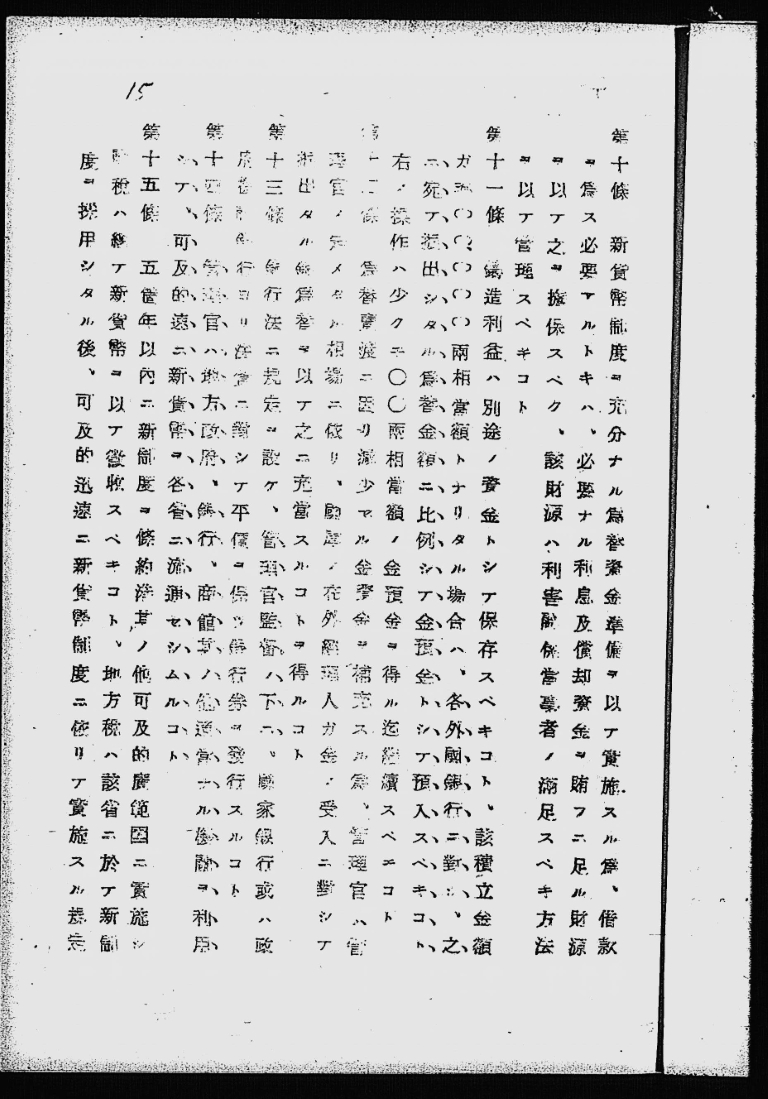 15
第十條 新貨幣制度ヲ充分ナル爲替資金準備ヲ以テ實施スル爲、借款
ヲ爲ス必要アルトキハ、必要ナル利息及償却資金ヲ賄フニ足ル財源
ヲ以テ之ヲ擔保スベク、該財源ハ利害關係當事者ノ滿足スベキ方法
ヲ以テ管理スベキコト
第十一條 鑄造利益ハ別途ノ資金トシテ保存スベキコト、該積立金額
ガ 〇〇〇〇〇兩相當額トナリタル場合ハ、各外國銀行ニ對シ、之
ニ宛テ振出シタル爲替金額ニ比例シテ金預金トシテ預入スベキコト、
右ノ操作ハ少クモ〇〇兩相當額ノ金預金ヲ得ル迄繼續スベキコト
第十二條 爲替賣渡ニ因リ減少スル金資金ヲ補充スル爲、管理官ハ管
理官ノ定メタル相場ニ依リ、 在外 理人ガ金ノ受入ニ對シテ
振出タル銀爲替ヲ以テ之ニ充當スルコトヲ得ルコト
第十三條 銀行法ニ規定ヲ設ケ、管理官監督ノ下ニ、國家銀行或ハ政
府 銀行ヨリ 貨ニ對シテ平價ヲ保ツ銀行券ヲ發行スルコト
第十四條 管理官ハ地方政府、銀行、商館其ノ他適當ナル機關ヲ利用
シテ、可及的速ニ新貨幣ヲ各省ニ流通セシムルコト
第十五條 五箇年以內ニ新制度ヲ條約港其ノ他可及的廣範圍ニ實施シ
關稅ハ總テ新貨幣ヲ以テ徵收スベキコト、地方稅ハ該省ニ於テ新制
度ヲ採用シタル後、可及的迅速ニ新貨幣制度ニ依リテ實施スル規定